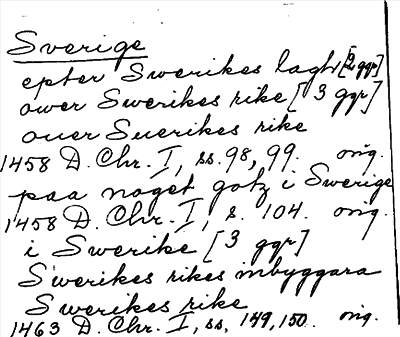 Sverige
epter Swerikes lagh [2 ggr]
ower Swerikes rike [3 ggr]
ouer Suerikes rike
1458 D. Chr. I, ss. 98, 99. orig.
paa noget gotz i Swerige
1458 D. Chr. I, s. 104. orig.
i Swerike [3 ggr]
Swerikes rikes inbyggara
Swerikes rike
1463 D. Chr. I, ss, 149, 150. orig.